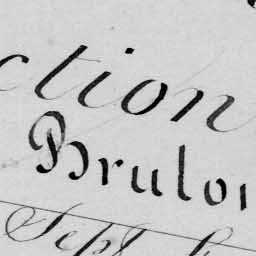 ction
Brulon
Sept